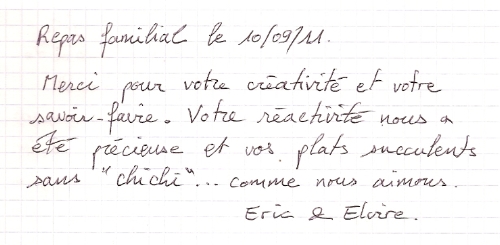 Repas familial le 10/09/11.
Merci pour votre créativité et votre
savoir-faire. Votre réactivité nous a
été précieuse et vos plats succulents
sans "chichi"... comme nous aimons.
Eric & Elvire.